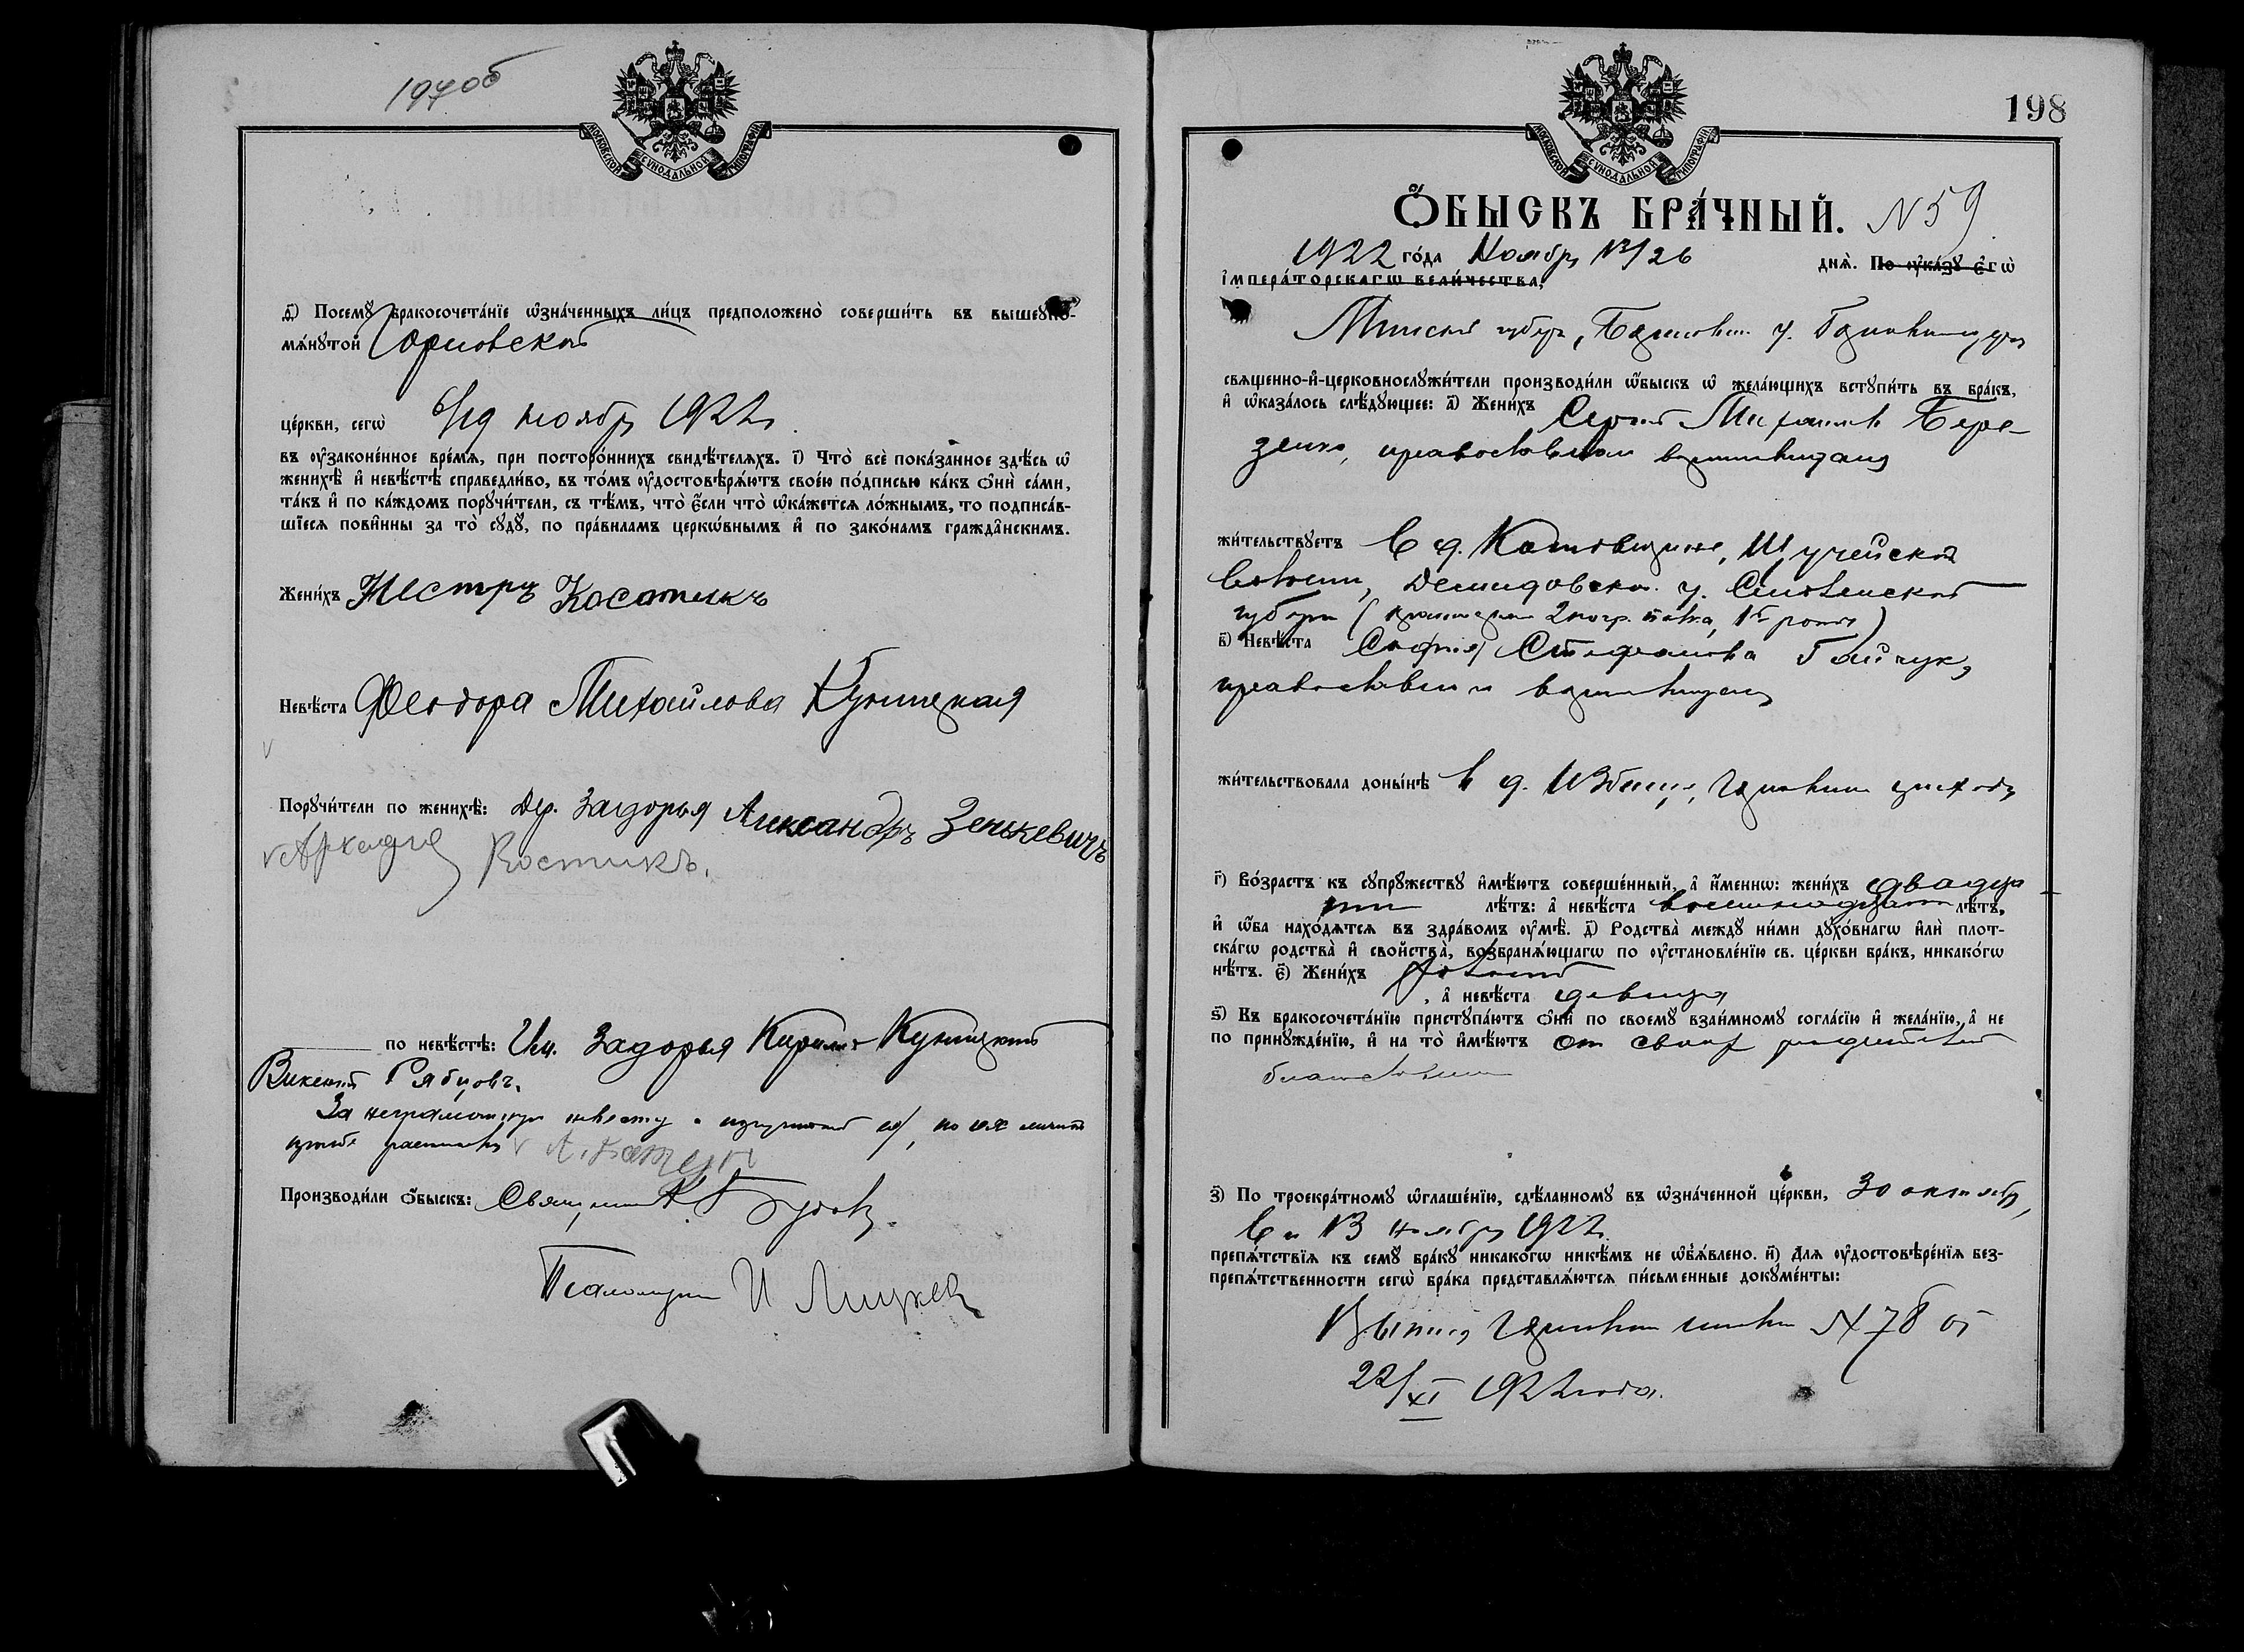 197об
МОСКОВСКОЙ СѴНОДАЛЬНОЙ ТИПОГРАФІИ
д҃) Посемꙋ̀ бракосочета́нїе ѡ҆зна́ченныхъ ли́цъ предположено̀ соверши́ть въ вышеꙋпо-
мѧ́нꙋтой
це́ркви, сегѡ̀ 6/19 ноября 1922 г.
въ ᲂу҆зако́ненное вре́мѧ, при посторо́ннихъ свидѣ́телѧхъ. і҃) Что̀ всѐ пока́занное здѣ́сь ѡ҆
женихѣ̀ и҆ невѣ́стѣ справедли́во, въ то́мъ ᲂу҆достовѣрѧ́ютъ свое́ю по́дписью ка́къ ѻ҆нѝ са́ми,
та́къ и҆ по ка́ждомъ порꙋчи́тели, съ тѣ́мъ, что̀ є҆́сли что̀ ѡ҆ка́жетсѧ ло́жнымъ, то подписа́в-
шїесѧ пови́нны за то̀ сꙋдꙋ̀, по пра́виламъ церко́внымъ и҆ по зако́намъ гражда́нскимъ.
Жени́хъ Нестръ Косатикъ
Невѣ́ста Феодора Михайлова Куницкая
Порꙋчи́тели по женихѣ̀: Дер. Задорья Александръ Зенькевичъ
Аркадие Костикъ.
по невѣ́стѣ: Им. Задорья Кирилл Куницкий
Викентий Рябцовъ.
За неграмотную невесту и поручителей, по их личной
просьбе расписался
Производи́ли ѻ҆́быскъ: Священник
Псаломщик И
198
МОСКОВСКОЙ СѴНОДАЛЬНОЙ ТИПОГРАФІИ
Ѻ҆́БЫСКЪ БРА́ЧНЫЙ. N 59
1922 го́да Ноября 13/26 днѧ̀. По ᲂу҆ка́зꙋ є҆гѡ̀
і҆мпера́торскагѡ вели́чества,
Минской губерн, Борисовск. у.
свѧще́нно-и҆-церковнослꙋжи́тели производи́ли ѡ҆́быскъ ѡ҆ жела́ющихъ встꙋпи́ть въ бра́къ,
и҆ ѡ҆каза́лось слѣ́дꙋющее: а҃) Жени́хъ Сергей Бере-
зенко, православного вероисповедания
жи́тельствꙋетъ в д. Щучейской
волости, Демидовско. у. Смоленской
губерн (2 погр. полка, 1й роты)
в҃) Невѣ́ста София Стефанова Гайчук,
православного вероисповедания
жи́тельствовала доны́нѣ в д. прихода
г҃) Во́зрастъ къ сꙋпрꙋ́жествꙋ и҆мѣ́ютъ соверше́нный, а҆ и҆́меннѡ: жени́хъ двадца
ти лѣ́тъ: а҆ невѣ́ста восемнадцати лѣ́тъ,
и҆ ѡ҆́ба нахо́дѧтсѧ въ здра́вомъ ᲂу҆мѣ̀. д҃) Родства̀ междꙋ̀ ни́ми дꙋхо́внагѡ и҆лѝ плот-
ска́гѡ родства̀ и҆ сво́йства̀, возбранѧ́ющагѡ по ᲂу҆становле́нїю св. це́ркви бра́къ, никако́гѡ
нѣ́тъ. є҃) Жени́хъ холост
, а҆ невѣ́ста девица
ѕ҃) Къ бракосочета́нїю пристꙋпа́ютъ ѻ҆нѝ по своемꙋ̀ взаи́мномꙋ согла́сїю и҆ жела́нїю, а҆ не
по принꙋжде́нїю, и҆ на то̀ и҆мѣ́ютъ от своих родителей
благословение
з҃) По троекра́тномꙋ ѡ҆глаше́нїю, сдѣ́ланномꙋ въ ѡ҆зна́ченной це́ркви, 30 октября,
6 и 13 ноября 1922
препѧ́тствїѧ къ семꙋ̀ бра́кꙋ никако́гѡ никѣ́мъ не ѡ҆б̾ѧ́влено. и҃) Длѧ ᲂу҆достовѣре́нїѧ без-
препѧ́тственности сегѡ̀ бра́ка представлѧ́ютсѧ пи́сьменные докꙋме́нты:
Выпись N 78 от
22/XI 1922 года.